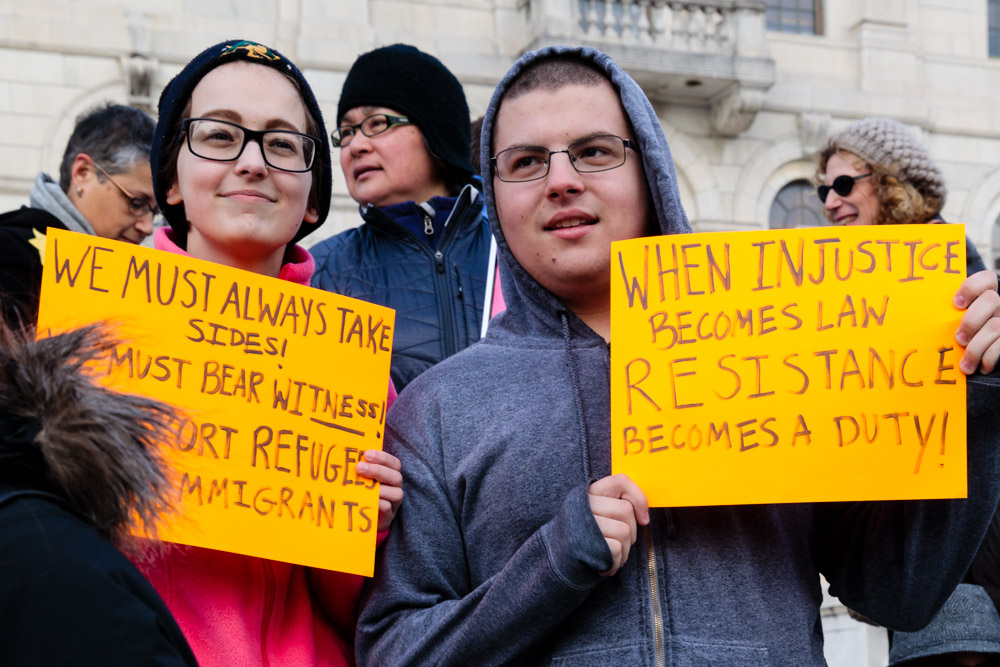 WE MUST ALWAYS TAKE
SIDES!
MUST BEAR WITNESS!
ORT REFUGEES
MMIGRANTS
WHEN INJUSTICE
BECOMES LAW
RESISTANCE
BECOMES A DUTY!